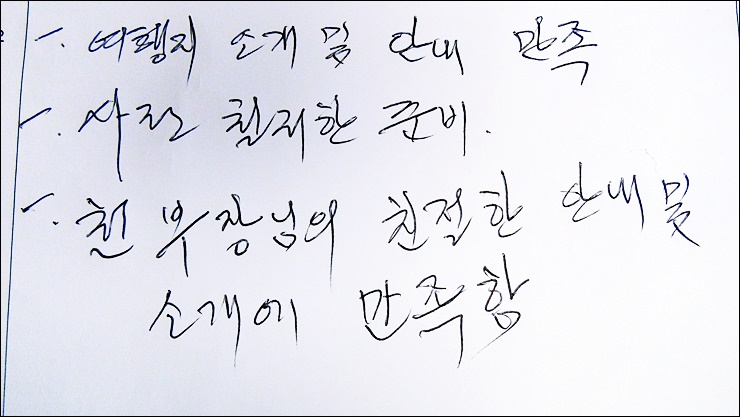 -. 여행지 소개 및 안내 만족
-. 사전 철저한 준비.
-. 천 부장님의 친절한 안내 및
소개에 만족함